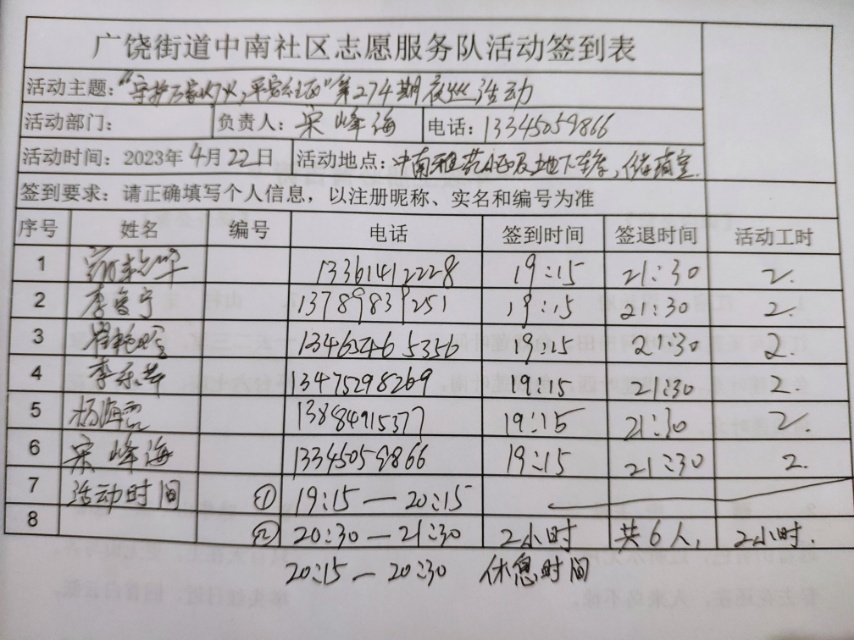 广饶街道中南社区志愿服务队活动签到表
活动主题：“守护万家灯火，平安社区”第274期夜巡活动
活动部门： 负责人：宋峰海 电话：13345059866
活动时间：2023年4月22日 活动地点：中南雅苑小区及地下车库，储藏室.
签到要求：请正确填写个人信息，以注册昵称、实名和编号为准
序号 姓名 编号 电话 签到时间 签退时间 活动工时
1 13361412228 19:15 21:30 2.
2 李宁 13789839251 19:15 21:30 2.
3 崔 13465465356 19:15 21:30 2.
4 李 13475298269 19:15 21:30 2.
5 杨海霞 13884915377 19:15 21:30 2.
6 宋峰海 13345059866 19:15 21:30 2.
7 活动时间 ① 19:15—20:15
8 ② 20:30—21:30 2小时 共6人, 2小时.
20:15—20:30 休息时间